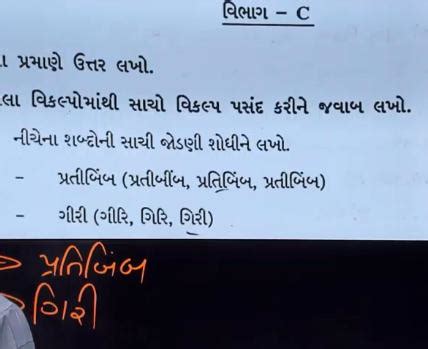 વિભાગ – C
પ્રમાણે ઉત્તર લખો.
વિકલ્પોમાંથી સાચો વિકલ્પ પસંદ કરીને જવાબ લખો.
નીચેના શબ્દોની સાચી જોડણી શોધીને લખો.
– પ્રતીબિંબ (પ્રતીબીંબ, પ્રતિબિંબ, પ્રતીબિંબ)
– ગીરી (ગીરિ, ગિરિ, ગિરી)
પ્રતિબિંબ
ગિરી